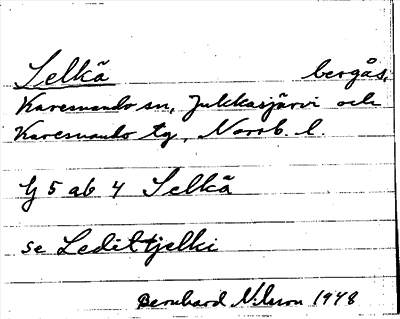 Selkä bergås,
Karesuando sn, Jukkasjärvi och
Karesuando tg, Norrb. l.
Bj 5 ab 4 Selkä
se Ledittjelki
Bernhard Nilsson 1948